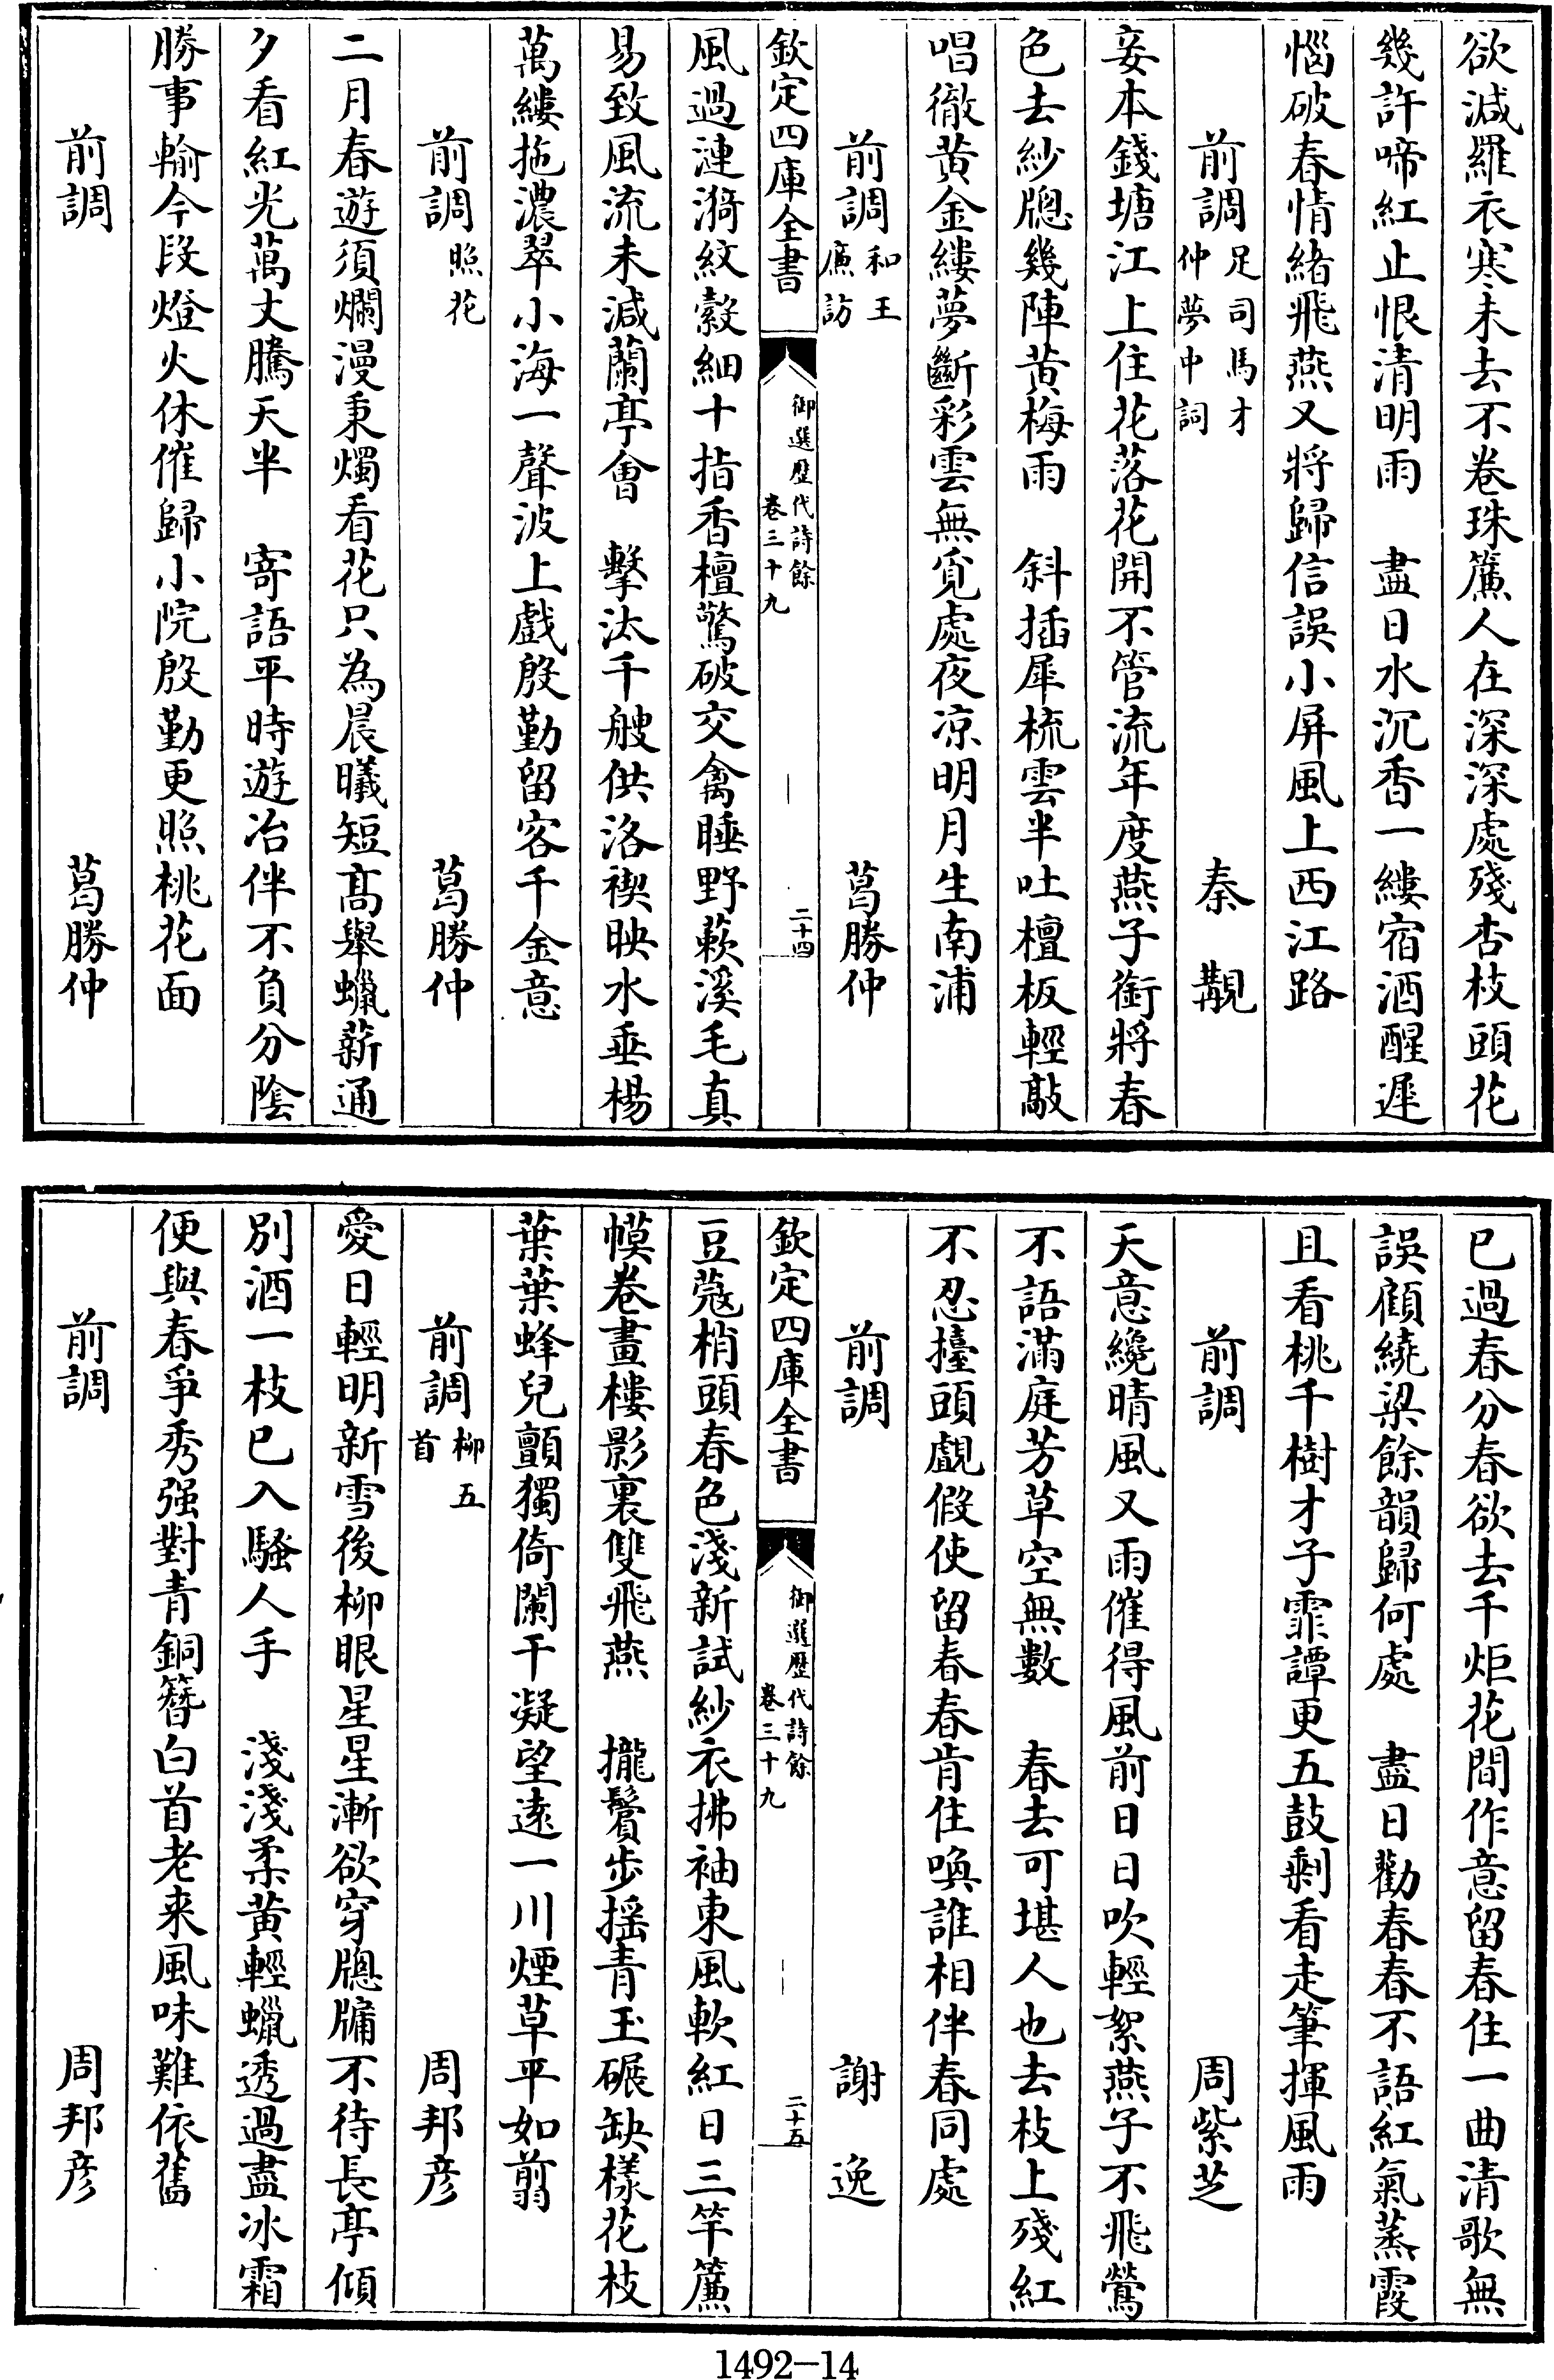 欲減羅衣寒未去不卷珠簾人在深深處殘杏枝頭花
幾許啼紅止恨清明雨　盡日水沉香一縷宿酒醒遲
惱破春情緒飛燕又將歸信誤小屏風上西江路
前調足司馬才仲夢中詞　秦觏
妾本錢塘江上住花落花開不管流年度燕子銜將春
色去紗牕幾陣黃梅雨　斜插犀梳雲半吐檀板輕敲
唱徹黃金縷夢斷彩雲無覓處夜凉明月生南浦
前調和王廉訪　葛勝仲
欽定四庫全書　御選歷代詩餘卷三十九　二十四
風過漣漪紋縠細十指香檀驚破交禽睡野蔌溪毛真
易致風流未減蘭亭會　擊汰千艘供洛禊映水垂楊
萬縷拖濃翠小海一聲波上戲殷勤留客千金意
前調照花　葛勝仲
二月春遊須爛漫秉燭看花只為晨曦短高舉蠟薪通
夕看紅光萬丈騰天半　寄語平時遊冶伴不負分陰
勝事輸今段燈火休催歸小院殷勤更照桃花面
前調　葛勝仲
已過春分春欲去千炬花間作意留春住一曲清歌無
誤顧繞梁餘韻歸何處　盡日勸春春不語紅氣蒸霞
且看桃千樹才子霏譚更五鼓剩看走筆揮風雨
前調　周紫芝
天意纔晴風又雨催得風前日日吹輕絮燕子不飛鶯
不語滿庭芳草空無數　春去可堪人也去枝上殘紅
不忍擡頭覷假使留春春肯住喚誰相伴春同處
前調　謝逸
欽定四庫全書　御選歷代詩餘卷三十九　二十五
豆蔻梢頭春色淺新試紗衣拂袖東風軟紅日三竿簾
幙卷畫樓影裏雙飛燕　攏鬢步搖青玉碾缺樣花枝
葉葉蜂兒顫獨倚闌干凝望遠一川煙草平如翦
前調柳五首　周邦彥
愛日輕明新雪後柳眼星星漸欲穿牕牖不待長亭傾
別酒一枝已入騷人手　淺淺柔黃輕蠟透過盡冰霜
便與春爭秀强對青銅簪白首老来風味難依舊
前調　周邦彥
1492-14